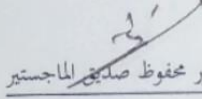 ر محفوظ صديق الماجستير